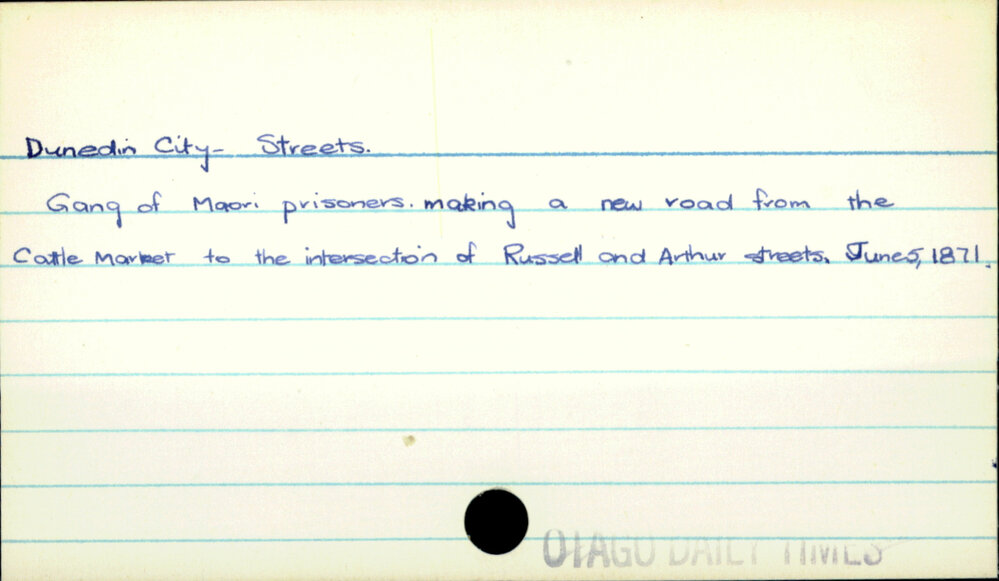 Dunedin City- Streets.
Gang of Maori prisoners. making a new road from the
Cattle Market to the intersection of Russell and Arthur streets. June 5, 1871.
OTAGO DAILY TIMES